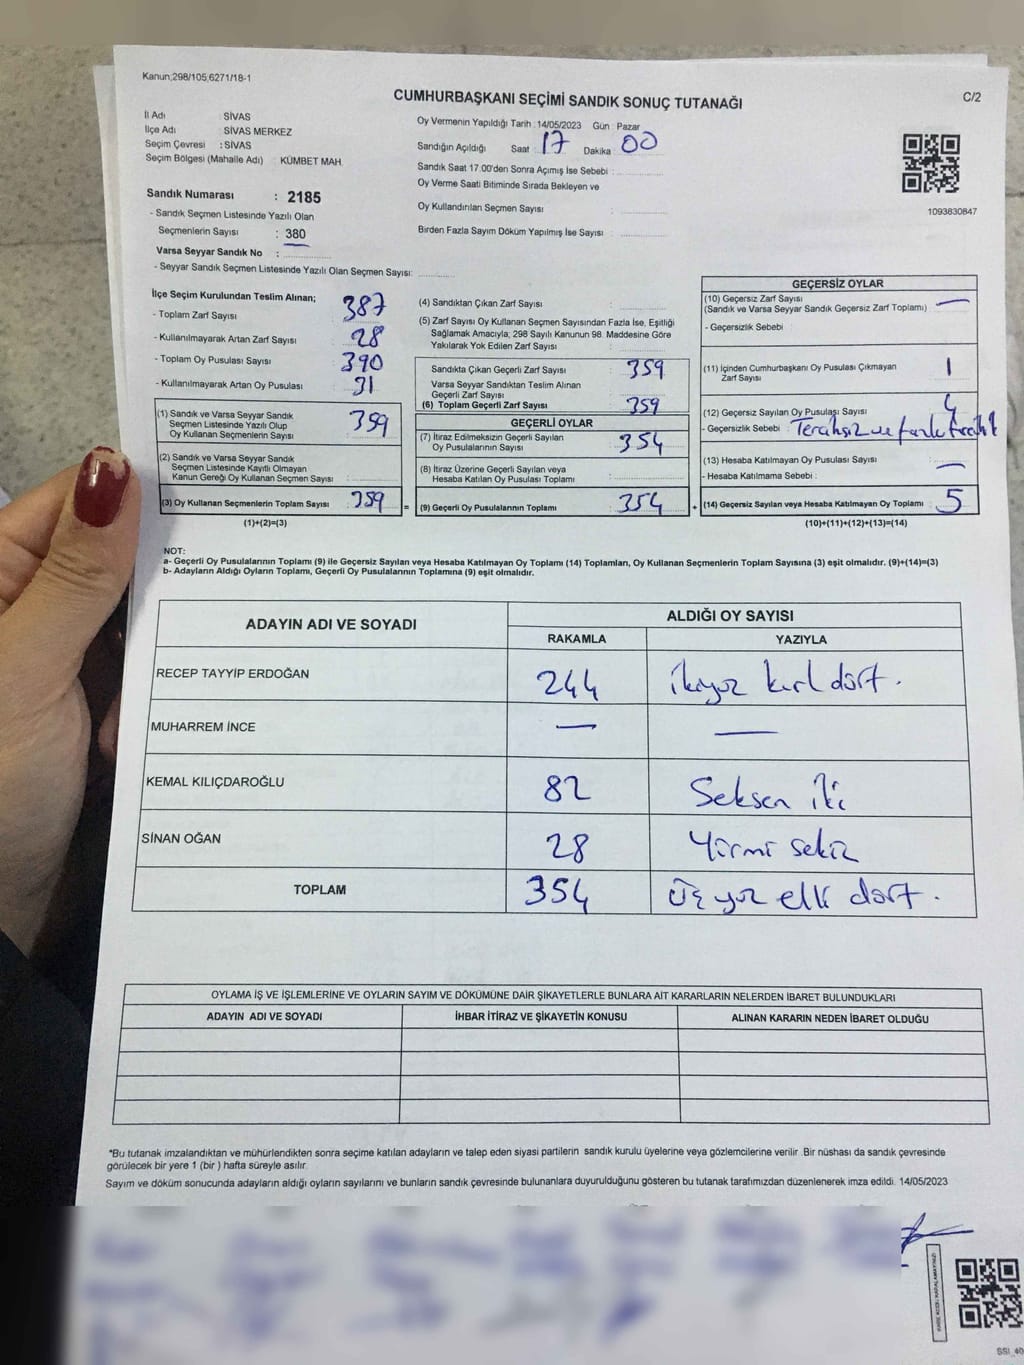 Kanun;298/105,6271/18-1
C/2
CUMHURBAŞKANI SEÇİMİ SANDIK SONUÇ TUTANAĞI
İl Adı : SİVAS
İlçe Adı : SİVAS MERKEZ
Seçim Çevresi : SİVAS
Seçim Bölgesi (Mahalle Adı) : KÜMBET MAH.
Sandık Numarası : 2185
- Sandık Seçmen Listesinde Yazılı Olan
Seçmenlerin Sayısı : 380
Varsa Seyyar Sandık No :
- Seyyar Sandık Seçmen Listesinde Yazılı Olan Seçmen Sayısı:
Oy Vermenin Yapıldığı Tarih :14/05/2023 Gün : Pazar
Sandığın Açıldığı Saat : 17 Dakika : 00
Sandık Saat 17.00'den Sonra Açımış İse Sebebi :
Oy Verme Saati Bitiminde Sırada Bekleyen ve
Oy Kullandırılan Seçmen Sayısı :
Birden Fazla Sayım Döküm Yapılmış İse Sayısı :
1093830847
İlçe Seçim Kurulundan Teslim Alınan;
- Toplam Zarf Sayısı : 387
- Kullanılmayarak Artan Zarf Sayısı : 28
- Toplam Oy Pusulası Sayısı : 390
- Kullanılmayarak Artan Oy Pusulası : 31
(1) Sandık ve Varsa Seyyar Sandık
Seçmen Listesinde Yazılı Olup
Oy Kullanan Seçmenlerin Sayısı : 359
(2) Sandık ve Varsa Seyyar Sandık
Seçmen Listesinde Kayıtlı Olmayan
Kanun Gereği Oy Kullanan Seçmen Sayısı :
(3) Oy Kullanan Seçmenlerin Toplam Sayısı : 359 =
(1)+(2)=(3)
(4) Sandıktan Çıkan Zarf Sayısı :
(5) Zarf Sayısı Oy Kullanan Seçmen Sayısından Fazla İse, Eşitliği
Sağlamak Amacıyla, 298 Sayılı Kanunun 98. Maddesine Göre
Yakılarak Yok Edilen Zarf Sayısı :
Sandıkta Çıkan Geçerli Zarf Sayısı : 359
Varsa Seyyar Sandıktan Teslim Alınan
Geçerli Zarf Sayısı :
(6) Toplam Geçerli Zarf Sayısı : 359
GEÇERLİ OYLAR
(7) İtiraz Edilmeksizin Geçerli Sayılan
Oy Pusulalarının Sayısı : 354
(8) İtiraz Üzerine Geçerli Sayılan veya
Hesaba Katılan Oy Pusulası Toplamı :
(9) Geçerli Oy Pusulalarının Toplamı : 354 +
GEÇERSİZ OYLAR
(10) Geçersiz Zarf Sayısı : —
(Sandık ve Varsa Seyyar Sandık Geçersiz Zarf Toplamı)
- Geçersizlik Sebebi :
(11) İçinden Cumhurbaşkanı Oy Pusulası Çıkmayan
Zarf Sayısı : 1
(12) Geçersiz Sayılan Oy Pusulası Sayısı : 4
- Geçersizlik Sebebi : Tercihsiz ve fazla tercih
(13) Hesaba Katılmayan Oy Pusulası Sayısı : —
- Hesaba Katılmama Sebebi :
(14) Geçersiz Sayılan veya Hesaba Katılmayan Oy Toplamı : 5
(10)+(11)+(12)+(13)=(14)
NOT:
a- Geçerli Oy Pusulalarının Toplamı (9) ile Geçersiz Sayılan veya Hesaba Katılmayan Oy Toplamı (14) Toplamları, Oy Kullanan Seçmenlerin Toplam Sayısına (3) eşit olmalıdır. (9)+(14)=(3)
b- Adayların Aldığı Oyların Toplamı, Geçerli Oy Pusulalarının Toplamına (9) eşit olmalıdır.
ADAYIN ADI VE SOYADI ALDIĞI OY SAYISI
RAKAMLA YAZIYLA
RECEP TAYYİP ERDOĞAN 244 ikiyüz kırk dört.
MUHARREM İNCE — —
KEMAL KILIÇDAROĞLU 82 Seksen iki
SİNAN OĞAN 28 Yirmi sekiz
TOPLAM 354 Üç yüz elli dört.
OYLAMA İŞ VE İŞLEMLERİNE VE OYLARIN SAYIM VE DÖKÜMÜNE DAİR ŞİKAYETLERLE BUNLARA AİT KARARLARIN NELERDEN İBARET BULUNDUKLARI
ADAYIN ADI VE SOYADI İHBAR İTİRAZ VE ŞİKAYETİN KONUSU ALINAN KARARIN NEDEN İBARET OLDUĞU
*Bu tutanak imzalandıktan ve mühürlendikten sonra seçime katılan adayların ve talep eden siyasi partilerin sandık kurulu üyelerine veya gözlemcilerine verilir .Bir nüshası da sandık çevresinde
görülecek bir yere 1 (bir ) hafta süreyle asılır.
Sayım ve döküm sonucunda adayların aldığı oyların sayılarını ve bunların sandık çevresinde bulunanlara duyurulduğunu gösteren bu tutanak tarafımızdan düzenlenerek imza edildi. 14/05/2023